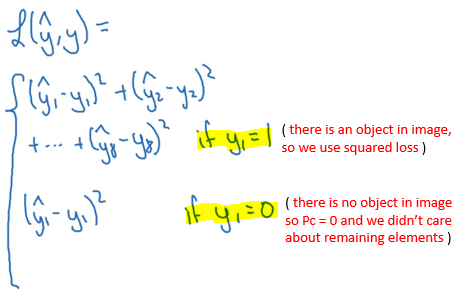 ℒ(ŷ,y) =
{ (ŷ₁-y₁)² + (ŷ₂-y₂)²
+ ... + (ŷ₈-y₈)² if y₁=1 ( there is an object in image,
so we use squared loss )
(ŷ₁-y₁)² if y₁=0 ( there is no object in image
so Pc = 0 and we didn't care
about remaining elements )